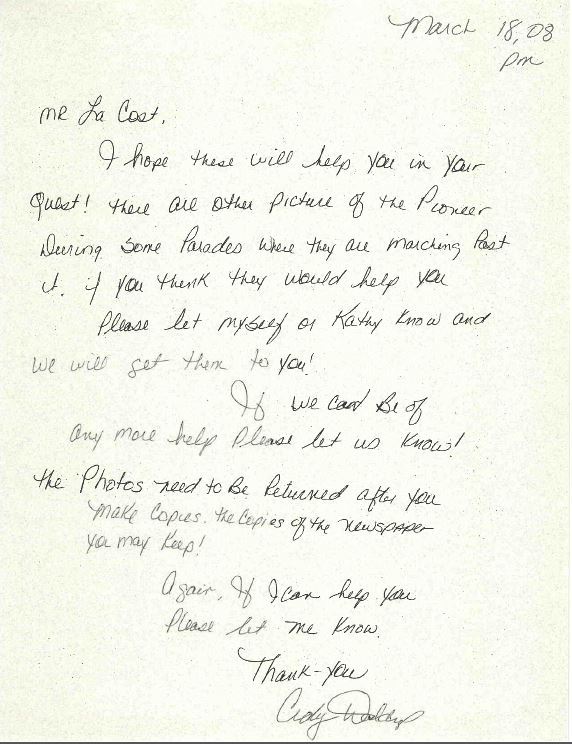 March 18, 08
pm
MR La Cost,
I hope these will help you in your
Quest! there are other picture of the Pioneer
During Some Parades where they are marching Past
it. if you think they would help you
Please let myself or Kathy Know and
We will get them to you!
If we can Be of
any more help Please let us Know!
the Photos need to Be Returned after you
Make Copies. the Copies of the newspaper
you may Keep!
Again, If I can help you
Please let me Know.
Thank-you